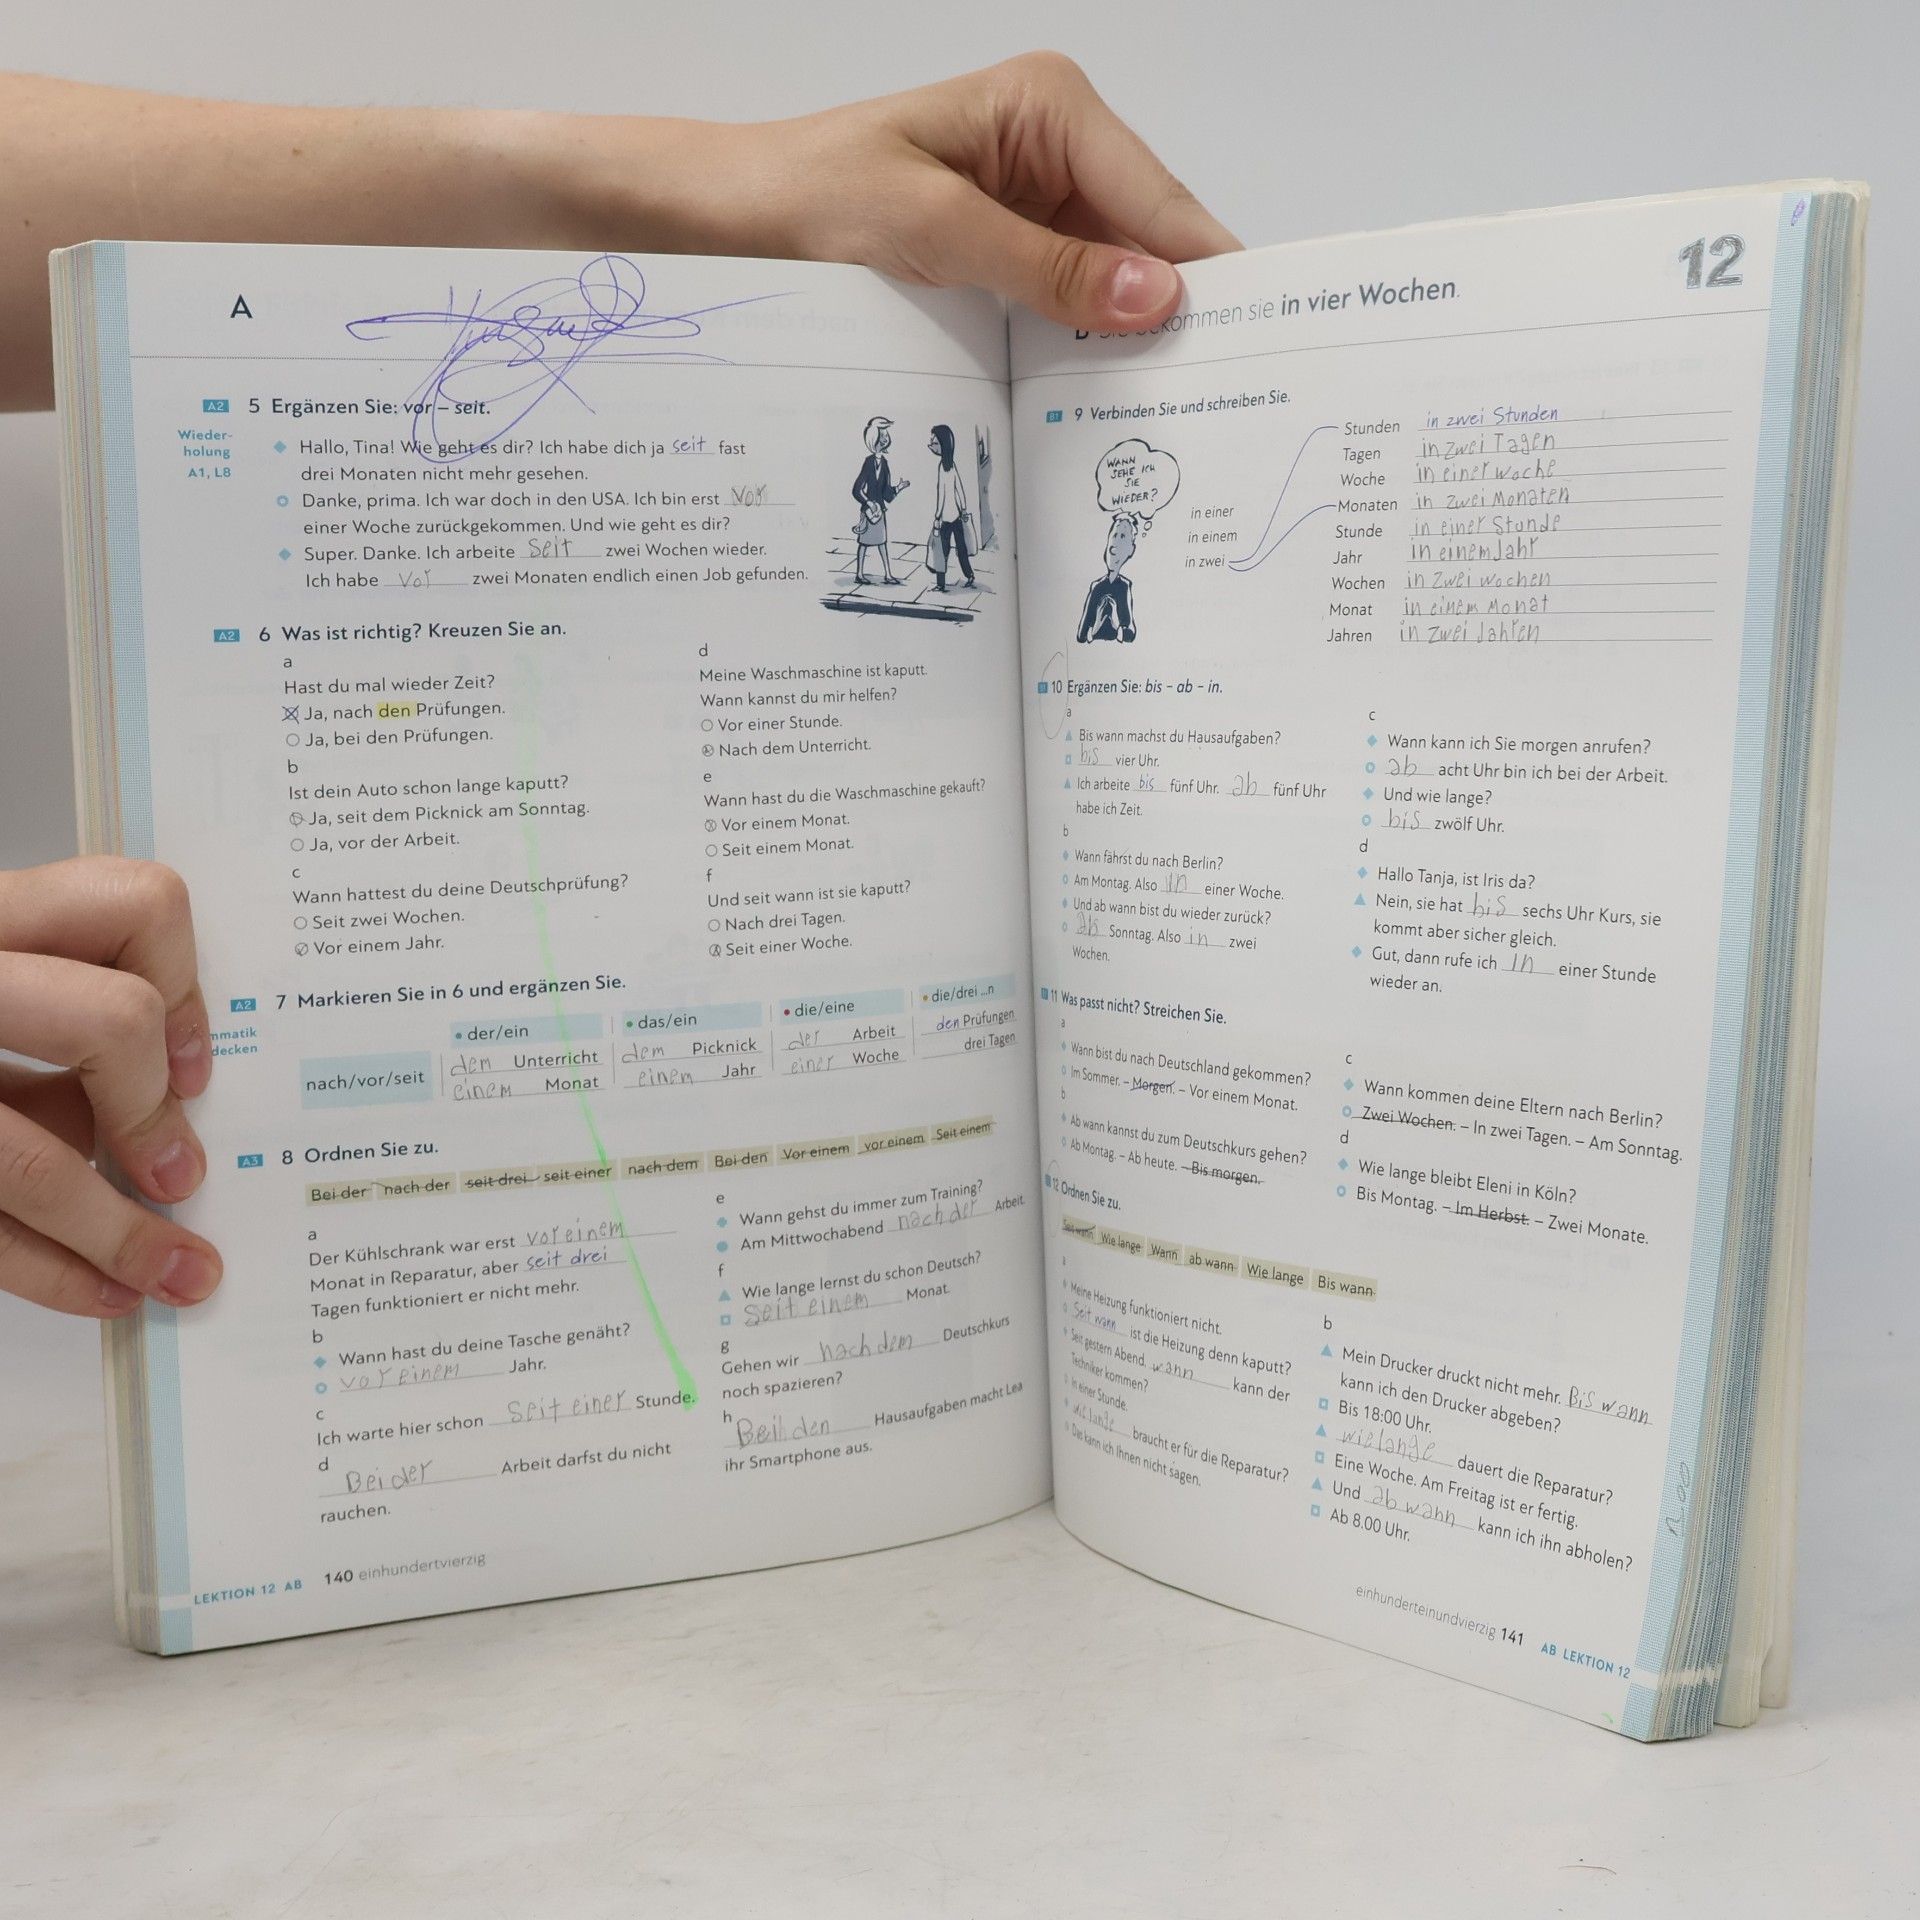 A
A2 5 Ergänzen Sie: vor – seit.
Wieder-
holung
A1, L8
Hallo, Tina! Wie geht es dir? Ich habe dich ja seit fast
drei Monaten nicht mehr gesehen.
Danke, prima. Ich war doch in den USA. Ich bin erst vor
einer Woche zurückgekommen. Und wie geht es dir?
Super. Danke. Ich arbeite seit zwei Wochen wieder.
Ich habe vor zwei Monaten endlich einen Job gefunden.
A2 6 Was ist richtig? Kreuzen Sie an.
a
Hast du mal wieder Zeit?
Ja, nach den Prüfungen.
Ja, bei den Prüfungen.
b
Ist dein Auto schon lange kaputt?
Ja, seit dem Picknick am Sonntag.
Ja, vor der Arbeit.
c
Wann hattest du deine Deutschprüfung?
Seit zwei Wochen.
Vor einem Jahr.
d
Meine Waschmaschine ist kaputt.
Wann kannst du mir helfen?
Vor einer Stunde.
Nach dem Unterricht.
e
Wann hast du die Waschmaschine gekauft?
Vor einem Monat.
Seit einem Monat.
f
Und seit wann ist sie kaputt?
Nach drei Tagen.
Seit einer Woche.
A2 7 Markieren Sie in 6 und ergänzen Sie.
mmatik
decken
• der/ein • das/ein • die/eine • die/drei ...n
nach/vor/seit
dem Unterricht dem Picknick der Arbeit den Prüfungen
einem Monat einem Jahr einer Woche drei Tagen
A3 8 Ordnen Sie zu.
Bei der nach der seit drei seit einer nach dem Bei den Vor einem vor einem Seit einem
a
Der Kühlschrank war erst vor einem
Monat in Reparatur, aber seit drei
Tagen funktioniert er nicht mehr.
b
Wann hast du deine Tasche genäht?
vor einem Jahr.
c
Ich warte hier schon seit einer Stunde.
d
Bei der Arbeit darfst du nicht
rauchen.
e
Wann gehst du immer zum Training?
Am Mittwochabend nach der Arbeit.
f
Wie lange lernst du schon Deutsch?
Seit einem Monat.
g
Gehen wir nach dem Deutschkurs
noch spazieren?
h
Bei den Hausaufgaben macht Lea
ihr Smartphone aus.
LEKTION 12 AB 140 einhundertvierzig
12
bekommen sie in vier Wochen.
B1 9 Verbinden Sie und schreiben Sie.
WANN
SEHE ICH
SIE
WIEDER?
in einer
in einem
in zwei
Stunden in zwei Stunden
Tagen in zwei Tagen
Woche in einer woche
Monaten in zwei Monaten
Stunde in einer Stunde
Jahr in einem Jahr
Wochen in zwei wochen
Monat in einem Monat
Jahren in zwei Jahren
10 Ergänzen Sie: bis – ab – in.
a
Bis wann machst du Hausaufgaben?
bis vier Uhr.
Ich arbeite bis fünf Uhr. ab fünf Uhr
habe ich Zeit.
b
Wann fährst du nach Berlin?
Am Montag. Also in einer Woche.
Und ab wann bist du wieder zurück?
ab Sonntag. Also in zwei
Wochen.
c
Wann kann ich Sie morgen anrufen?
ab acht Uhr bin ich bei der Arbeit.
Und wie lange?
bis zwölf Uhr.
d
Hallo Tanja, ist Iris da?
Nein, sie hat bis sechs Uhr Kurs, sie
kommt aber sicher gleich.
Gut, dann rufe ich in einer Stunde
wieder an.
11 Was passt nicht? Streichen Sie.
a
Wann bist du nach Deutschland gekommen?
Im Sommer. – Morgen. – Vor einem Monat.
b
Ab wann kannst du zum Deutschkurs gehen?
Ab Montag. – Ab heute. – Bis morgen.
c
Wann kommen deine Eltern nach Berlin?
Zwei Wochen. – In zwei Tagen. – Am Sonntag.
d
Wie lange bleibt Eleni in Köln?
Bis Montag. – Im Herbst. – Zwei Monate.
12 Ordnen Sie zu.
Seit wann Wie lange Wann ab wann Wie lange Bis wann
a
Meine Heizung funktioniert nicht.
Seit wann ist die Heizung denn kaputt?
Seit gestern Abend. wann kann der
Techniker kommen?
In einer Stunde.
wie lange braucht er für die Reparatur?
Das kann ich Ihnen nicht sagen.
b
Mein Drucker druckt nicht mehr. Bis wann
kann ich den Drucker abgeben?
Bis 18:00 Uhr.
wie lange dauert die Reparatur?
Eine Woche. Am Freitag ist er fertig.
Und ab wann kann ich ihn abholen?
Ab 8.00 Uhr.
einhunderteinundvierzig 141 AB LEKTION 12